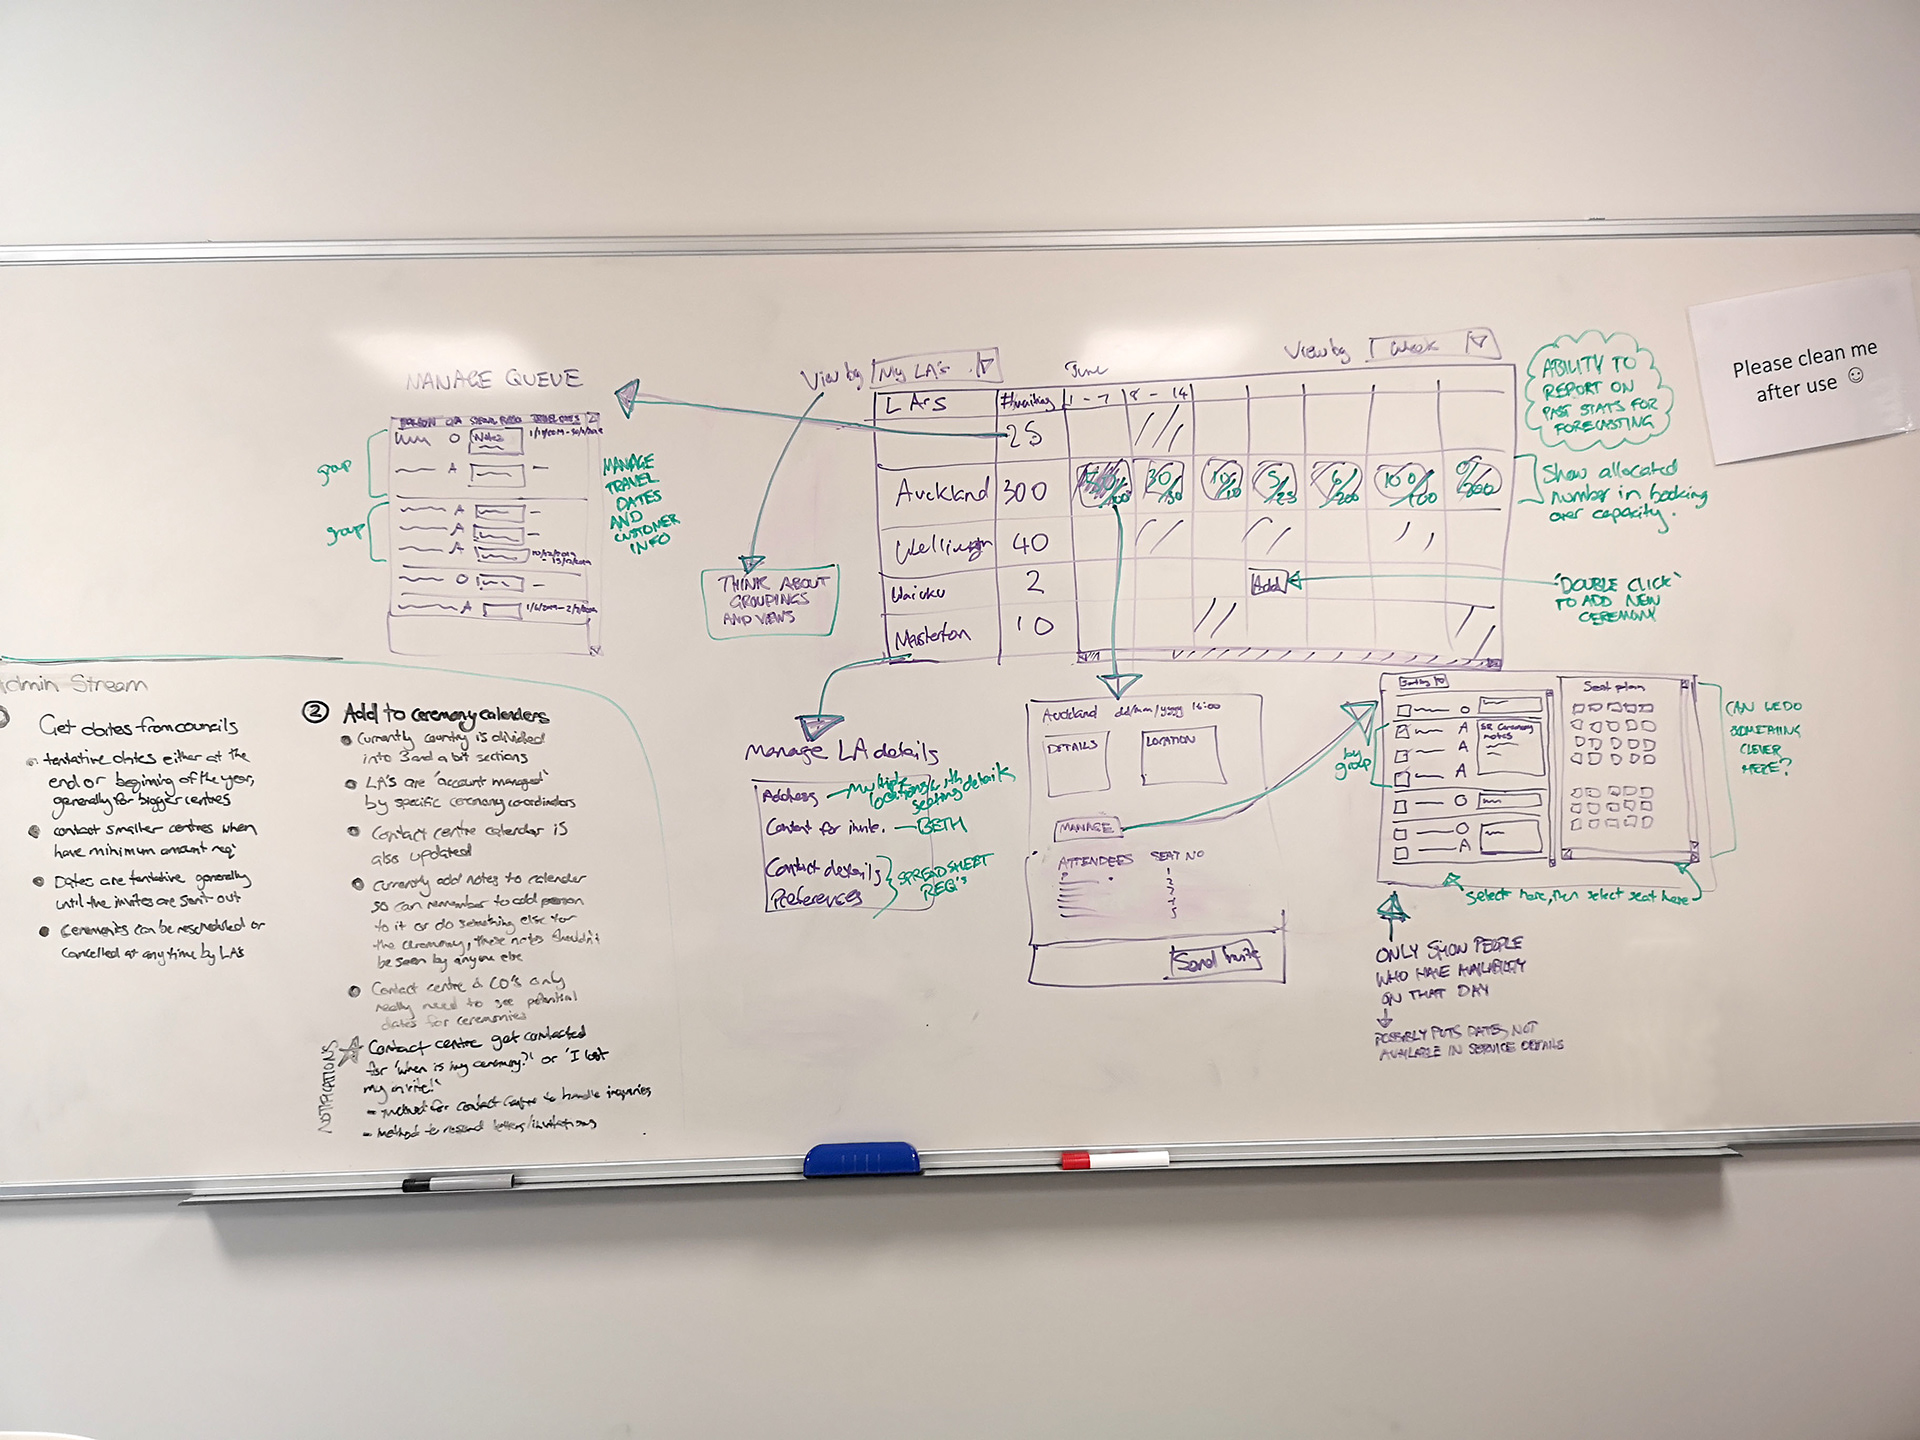 Please clean me
after use
MANAGE QUEUE
Notes
group
group
MANAGE
TRAVEL
DATES
AND
CUSTOMER
INFO
View by My LA's
June
View by Week
LA's #waiting 1 - 7 8 - 14
25
Auckland 300
Wellington 40
Waiuku 2
Add
Masterton 10
THINK ABOUT
GROUPINGS
AND VIEWS
ABILITY TO
REPORT ON
PAST STATS FOR
FORECASTING
Show allocated
number in booking
over capacity.
'DOUBLE CLICK'
TO ADD NEW
CEREMONY
Admin Stream
Get dates from councils
tentative dates either at the
end or beginning of the year,
generally for bigger centres
contact smaller centres when
have minimum amount req'
Dates are tentative generally
until the invites are sent out
Ceremonies can be rescheduled or
cancelled at any time by LA's
2 Add to ceremony calenders
Currently country is divided
into 3 and a bit sections
LA's are 'account managed'
by specific ceremony coordinators
Contact centre calendar is
also updated
Currently add notes to calender
so can remember to add person
to it or do something else for
the ceremony, these notes shouldn't
be seen by anyone else
Contact centre & CO's only
really need to see potential
dates for ceremonies
NOTIFICATIONS
Contact centre get contacted
for 'when is my ceremony?' or 'I lost
my invite!'
- method for contact centre to handle inquiries
- method to resend letters/invitations
Manage LA details
Address - Multiple locations with seating details
Content for invite. - BOTH
Contact details
Preferences
SPREADSHEET
REQ's
Auckland dd/mm/yyyy 14:00
DETAILS
LOCATION
MANAGE
ATTENDEES SEAT NO
1
2
3
4
5
Send Invite
by
group
SR Ceremony
notes
Seat plan
CAN WE DO
SOMETHING
CLEVER
HERE?
Select here, then select seat here
ONLY SHOW PEOPLE
WHO HAVE AVAILABILITY
ON THAT DAY
POSSIBLY PUTS DATES NOT
AVAILABLE IN SERVICE DETAILS